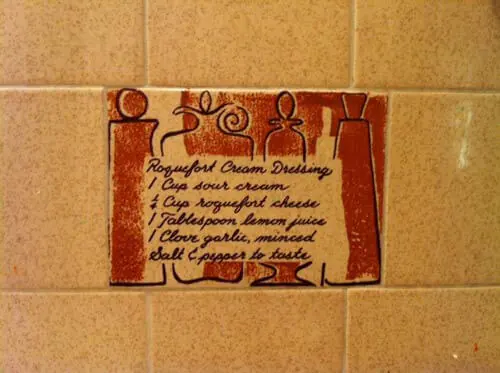 Roquefort Cream Dressing
1 Cup sour cream
¼ Cup roquefort cheese
1 Tablespoon lemon juice
1 Clove garlic, minced
Salt & pepper to taste